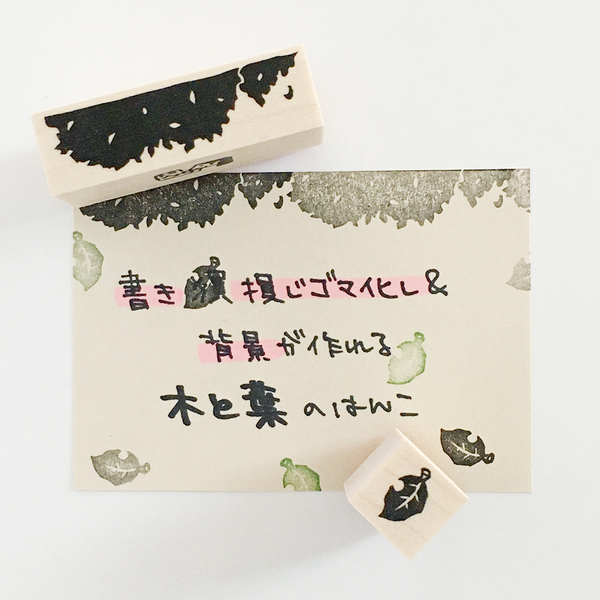 書き損じゴマイヒし&
背景が作れる
木と葉のはんこ